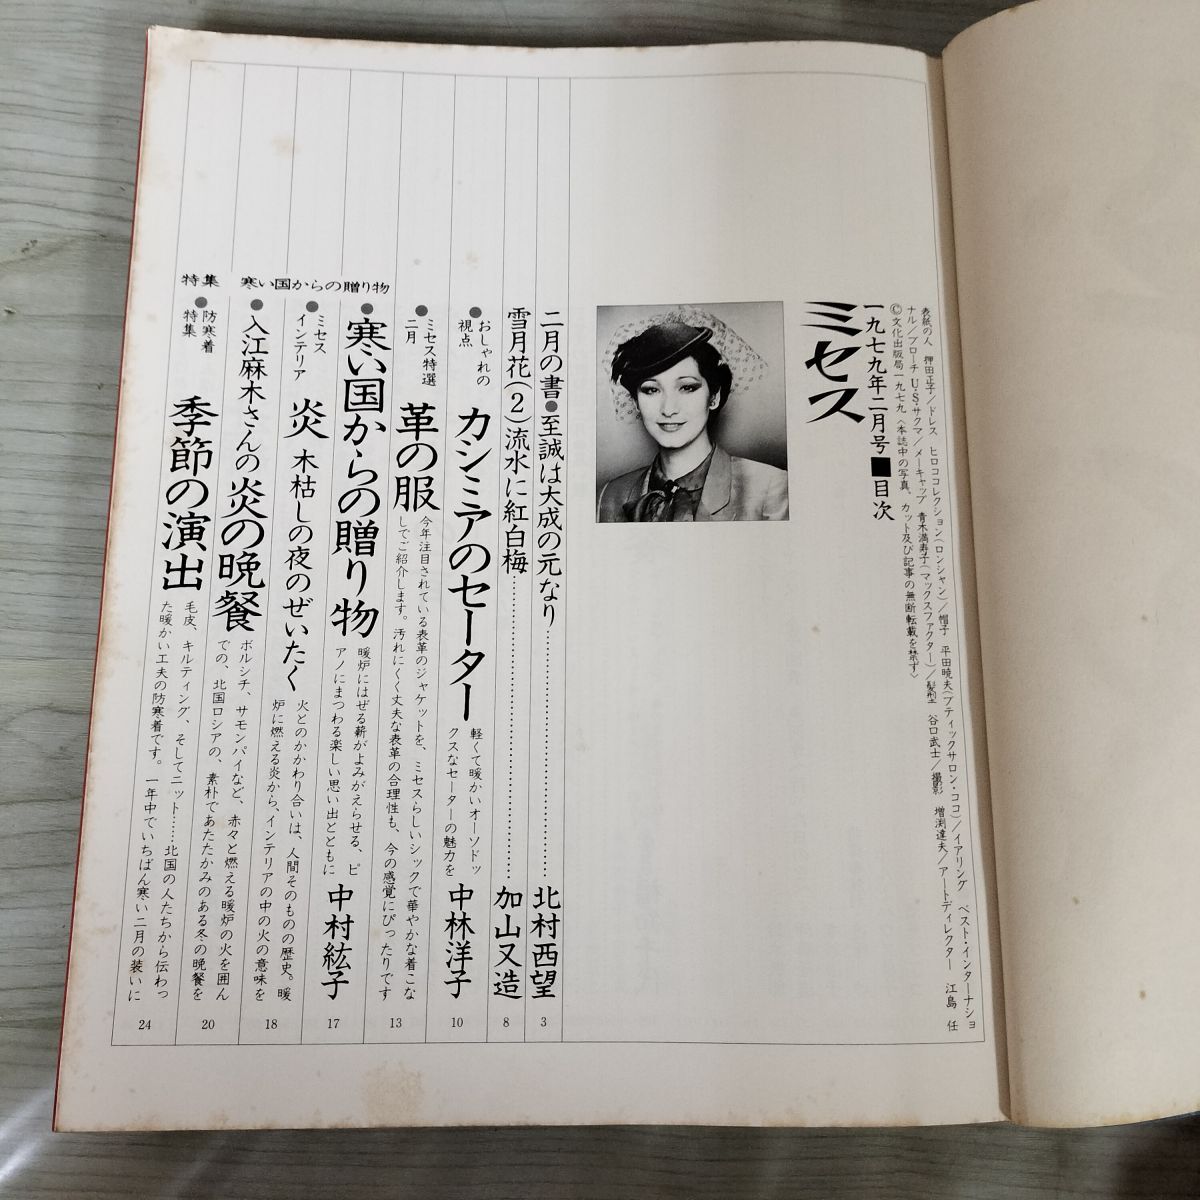 ミセス
一九七九年二月号■目次
表紙の人 押田正子/ドレス ヒロココレクション(ロンシャン)/帽子 平田暁夫(ブティックサロン・ココ)/イアリング ベスト・インターナショ
ナル/ブローチ U・S・サクマ/メーキャップ 青木満寿子(マックスファクター)/髪型 谷口武士/撮影 増渕達夫/アートディレクター 江島 任
©文化出版局一九七九〈本誌中の写真、カット及び記事の無断転載を禁ず〉
二月の書●至誠は大成の元なり………北村西望 3
雪月花(2)流水に紅白梅………加山又造 8
●おしゃれの
視点
カシミアのセーター
軽くて暖かいオーソドッ
クスなセーターの魅力を
中林洋子 10
●ミセス特選
二月
革の服
今年注目されている表革のジャケットを、ミセスらしいシックで華やかな着こな
しでご紹介します。汚れにくく丈夫な表革の合理性も、今の感覚にぴったりです
13
特集 寒い国からの贈り物
●寒い国からの贈り物
暖炉にはぜる薪がよみがえらせる、ピ
アノにまつわる楽しい思い出とともに
中村紘子 17
●ミセス
インテリア
炎 木枯しの夜のぜいたく
火とのかかわり合いは、人間そのものの歴史。暖
炉に燃える炎から、インテリアの中の火の意味を
18
●入江麻木さんの炎の晩餐
ボルシチ、サモンパイなど、赤々と燃える暖炉の火を囲ん
での、北国ロシアの、素朴であたたかみのある冬の晩餐を
20
●防寒着
特集
季節の演出
毛皮、キルティング、そしてニット……北国の人たちから伝わっ
た暖かい工夫の防寒着です。一年中でいちばん寒い二月の装いに
24